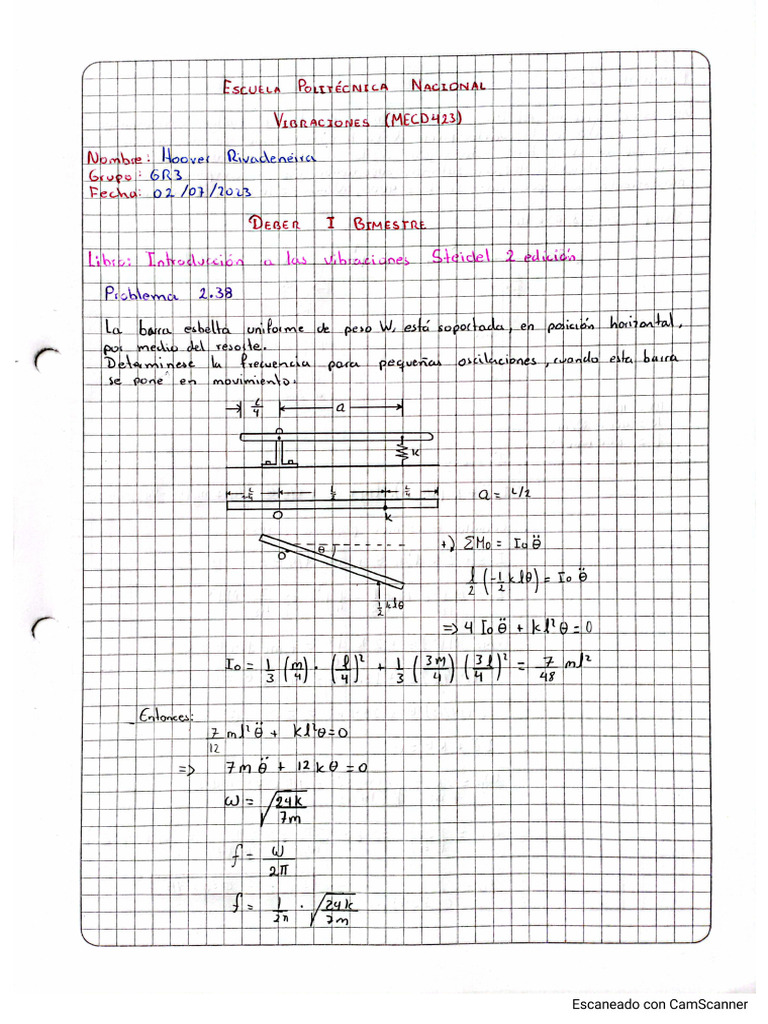 ESCUELA POLITÉCNICA NACIONAL
VIBRACIONES (MECD423)
Nombre: Hoover Rivadeneira
Grupo: GR3
Fecha: 02/07/2023
DEBER I BIMESTRE
Libro: Introducción a las vibraciones Steidel 2 edición
Problema 2.38
La barra esbelta uniforme de peso W, está soportada, en posición horizontal,
por medio del resorte.
Determinese la frecuencia para pequeñas oscilaciones, cuando esta barra
se pone en movimiento.
L/4 a
O
K
L/4 L/2 L/4 a = L/2
O K
θ +) ΣMo = Io θ̈
O
l/2 (-1/2 k l θ) = Io θ̈
1/2 k l θ
=> 4 Io θ̈ + k l² θ = 0
Io = 1/3 (m/4) · (l/4)² + 1/3 (3m/4) (3l/4)² = 7/48 ml²
Entonces:
7/12 ml² θ̈ + k l² θ = 0
=> 7m θ̈ + 12 k θ = 0
ω = √(24k/7m)
f = ω/2π
f = 1/2π · √(24k/7m)
Escaneado con CamScanner